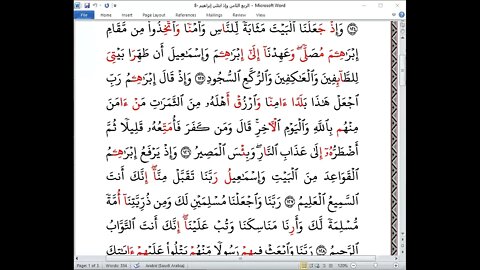 الربع الثامن وإذ ابتلى إبراهيم -8 - Microsoft Word
File Home Insert Page Layout References Mailings Review View
وَإِذْ جَعَلْنَا ٱلْبَيْتَ مَثَابَةً لِّلنَّاسِ وَأَمْنًا وَٱتَّخِذُوا۟ مِن مَّقَامِ
إِبْرَٰهِـۧمَ مُصَلًّى ۖ وَعَهِدْنَآ إِلَىٰٓ إِبْرَٰهِـۧمَ وَإِسْمَـٰعِيلَ أَن طَهِّرَا بَيْتِىَ
لِلطَّآئِفِينَ وَٱلْعَـٰكِفِينَ وَٱلرُّكَّعِ ٱلسُّجُودِ ۝١٢٥ وَإِذْ قَالَ إِبْرَٰهِـۧمُ رَبِّ
ٱجْعَلْ هَـٰذَا بَلَدًا ءَامِنًا وَٱرْزُقْ أَهْلَهُۥ مِنَ ٱلثَّمَرَٰتِ مَنْ ءَامَنَ
مِنْهُم بِٱللَّهِ وَٱلْيَوْمِ ٱلْـَٔاخِرِ ۖ قَالَ وَمَن كَفَرَ فَأُمَتِّعُهُۥ قَلِيلًا ثُمَّ
أَضْطَرُّهُۥٓ إِلَىٰ عَذَابِ ٱلنَّارِ ۖ وَبِئْسَ ٱلْمَصِيرُ ۝١٢٦ وَإِذْ يَرْفَعُ إِبْرَٰهِـۧمُ
ٱلْقَوَاعِدَ مِنَ ٱلْبَيْتِ وَإِسْمَـٰعِيلُ رَبَّنَا تَقَبَّلْ مِنَّآ ۖ إِنَّكَ أَنتَ
ٱلسَّمِيعُ ٱلْعَلِيمُ ۝١٢٧ رَبَّنَا وَٱجْعَلْنَا مُسْلِمَيْنِ لَكَ وَمِن ذُرِّيَّتِنَآ أُمَّةً
مُّسْلِمَةً لَّكَ وَأَرِنَا مَنَاسِكَنَا وَتُبْ عَلَيْنَآ ۖ إِنَّكَ أَنتَ ٱلتَّوَّابُ
ٱلرَّحِيمُ ۝١٢٨ رَبَّنَا وَٱبْعَثْ فِيهِمْ رَسُولًا مِّنْهُمْ يَتْلُوا۟ عَلَيْهِمْ ءَايَـٰتِكَ
Page: 1 of 3 Words: 394 Arabic (Saudi Arabia)